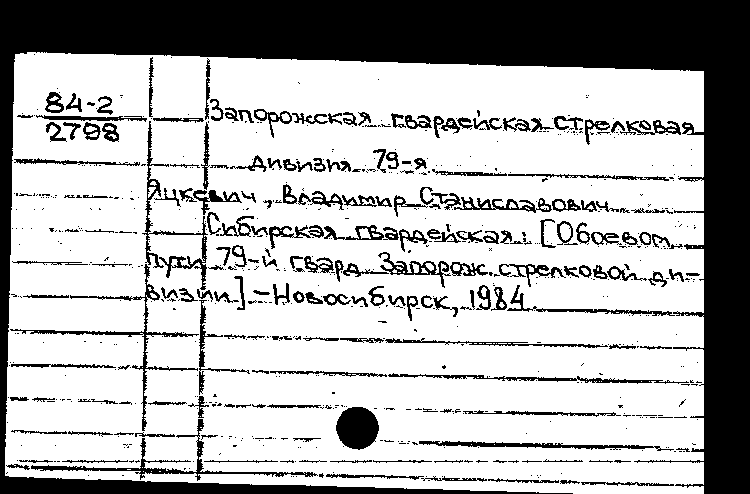 84-2
2798
Запорожская гвардейская стрелковая
дивизия 79-я
Яцкевич, Владимир Станиславович
Сибирская гвардейская: [О боевом
пути 79-й гвард. Запорож. стрелковой ди-
визии] - Новосибирск, 1984.